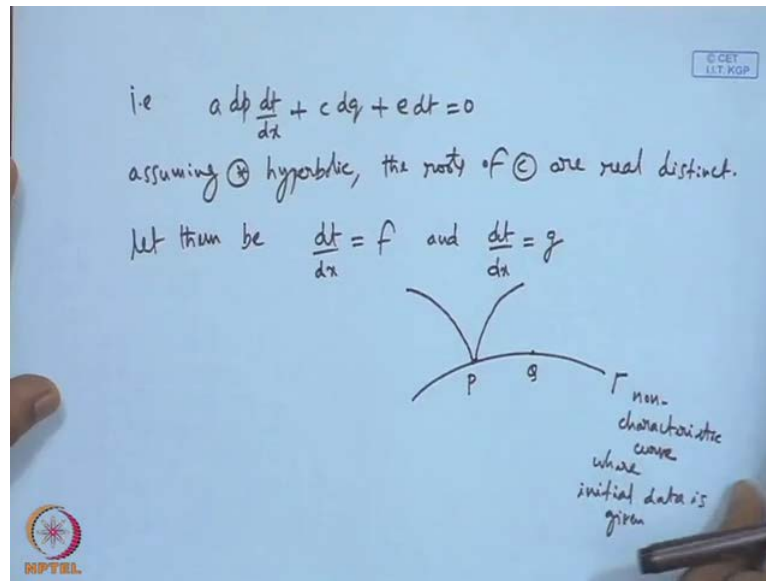 © CET
I.I.T. KGP
i.e a dp dt/dx + c dq + e dt = 0
assuming ⊛ hyperbolic, the roots of ⓒ are real distinct.
Let them be dt/dx = f and dt/dx = g
P Q Γ non-
characteristic
curve
where
initial data is
given
NPTEL